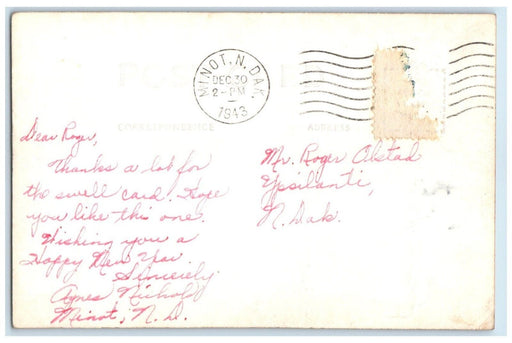 MINOT, N. DAK.
DEC 30
2-PM
1943
CORRESPONDENCE
ADDRESS
Dear Roger,
Thanks a lot for
the swell card. Hope
you like this one.
Wishing you a
Happy New Year.
Sincerely
Agnes
Minot, N. D.
Mr. Roger Olstad
Ypsilanti,
N. Dak.